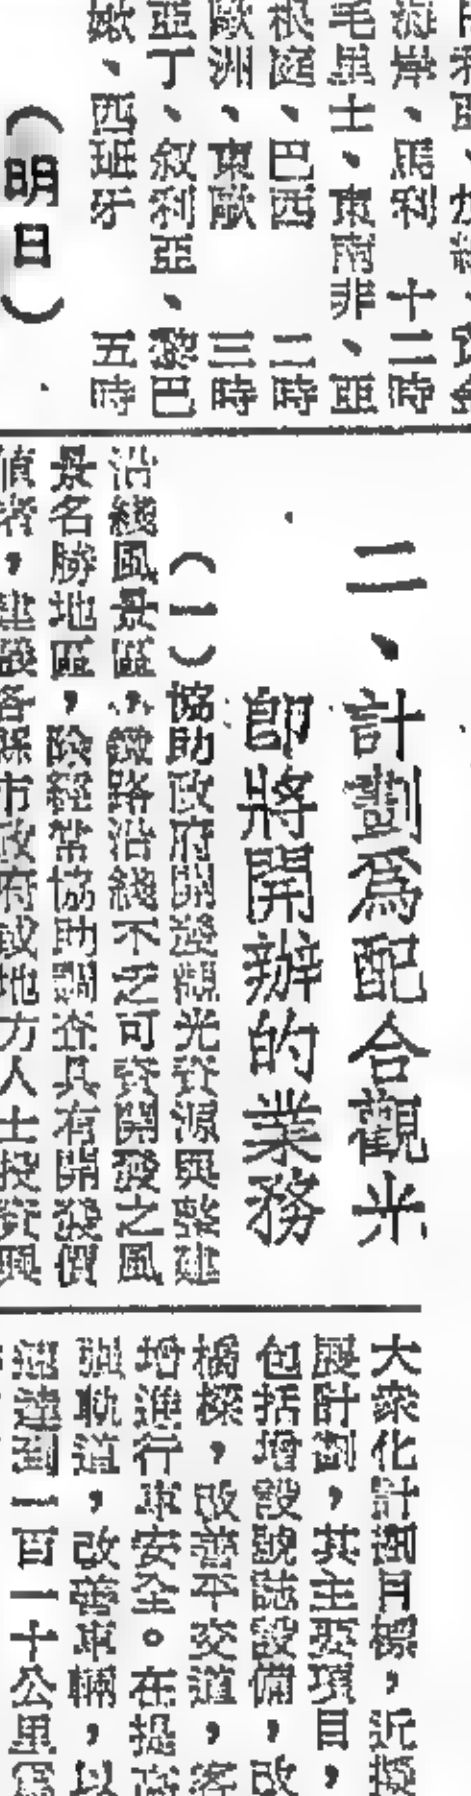 海岸、馬利　十二時
毛里士、東南非、亞
根廷、巴西　二時
歐洲、東歐　三時
亞丁、叙利亞、黎巴
嫩、西班牙　五時
（明日）
二、計劃爲配合觀光
即將開辦的業務
（一）協助政府開發觀光資源與整建
沿綫風景區：鐵路沿綫不乏可資開發之風
景名勝地區，除經常協助調查具有開發價
值者，建設各縣市政府或地方人士投資興
大衆化計劃目標，近擬
展計劃，其主要項目，
包括增設號誌設備，改
橋樑，改善平交道，客
增進行車安全。在提高
軌道，改善車輛，以
速達到一百一十公里爲